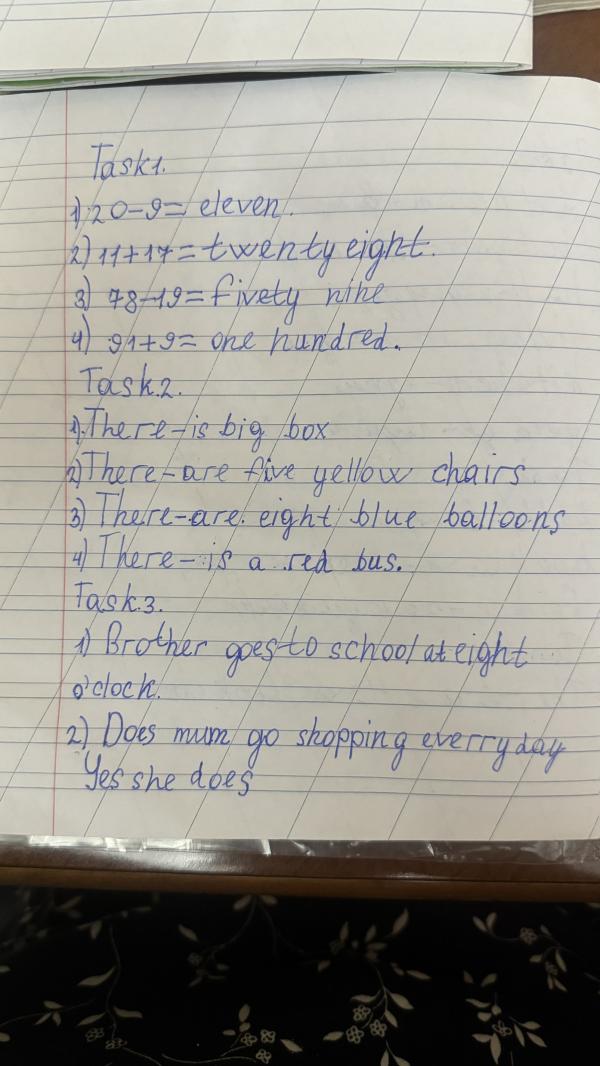 Task1.
1) 20-9= eleven.
2) 11+17=twenty eight.
3) 78-19= fivety nine
4) 91+9= one hundred.
Task.2.
1). There-is big box
2) There-are five yellow chairs
3) There-are. eight blue balloons
4) There-is a red bus.
Task.3.
1) Brother goes to school at eight
o'clock.
2) Does mum go shopping everry day
Yes she does